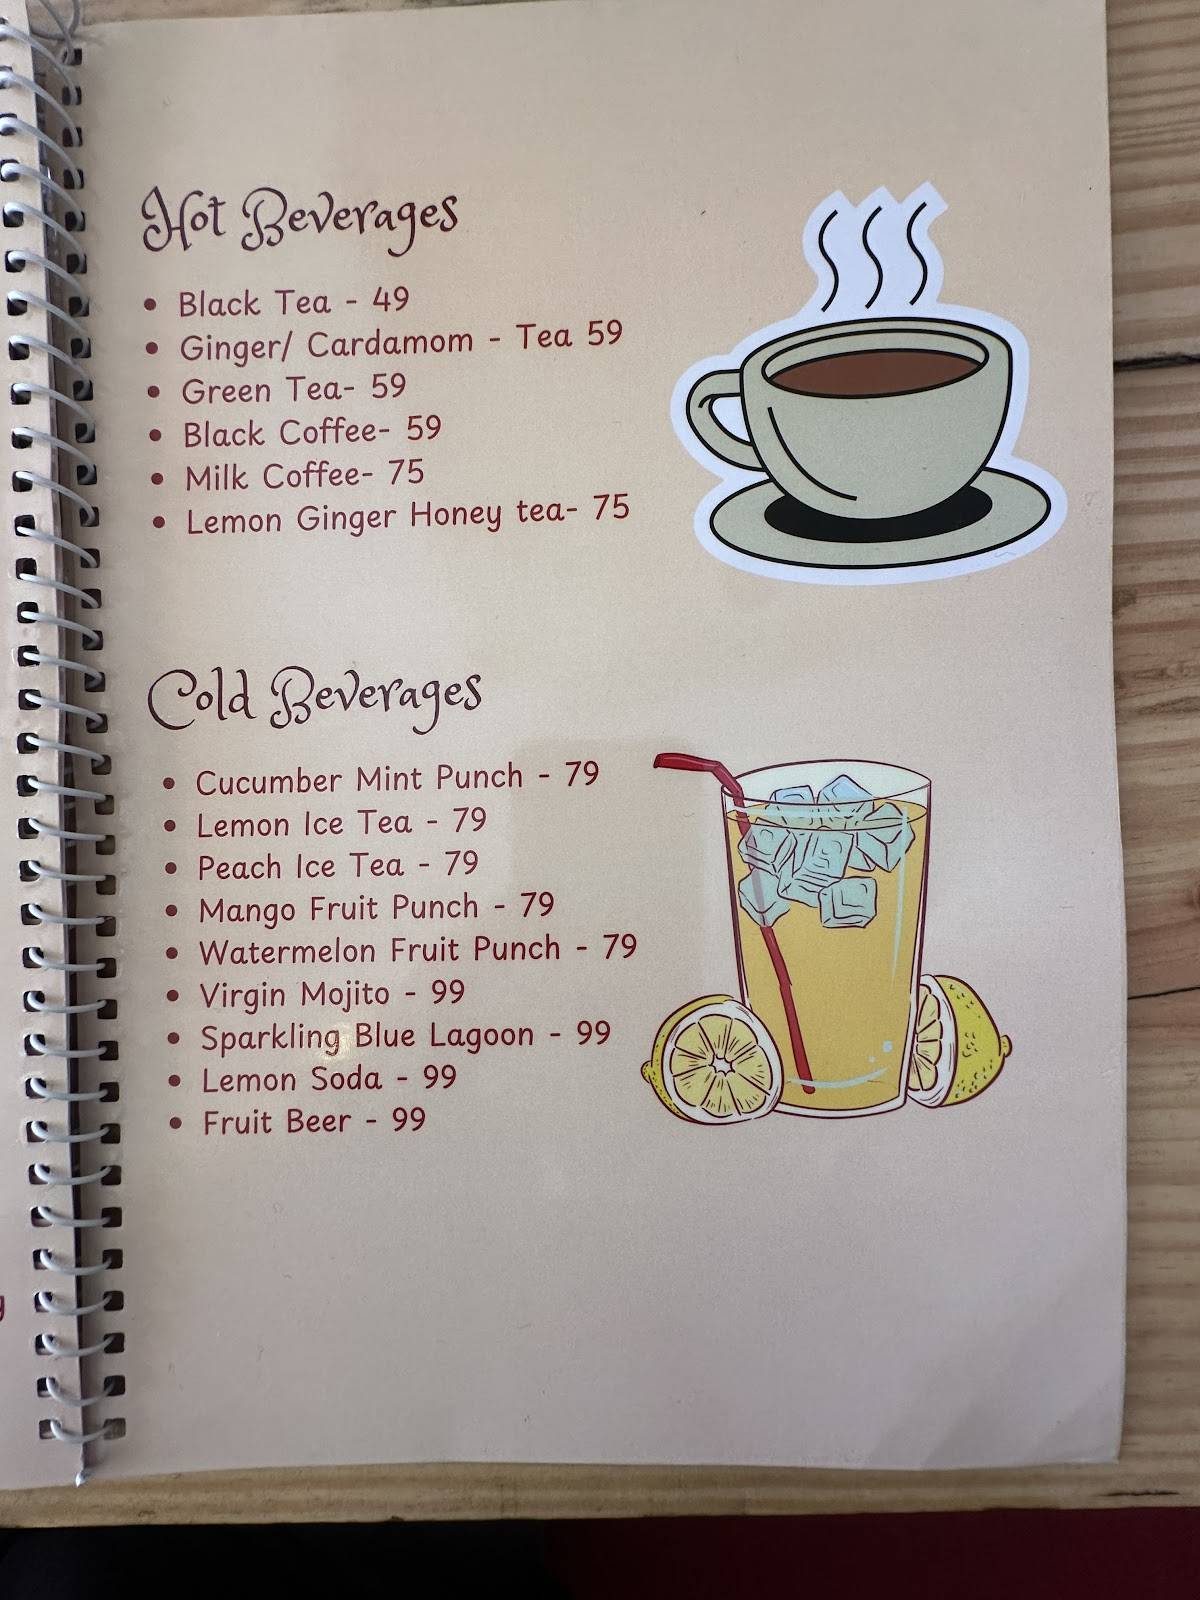 Hot Beverages
• Black Tea - 49
• Ginger/ Cardamom - Tea 59
• Green Tea- 59
• Black Coffee- 59
• Milk Coffee- 75
• Lemon Ginger Honey tea- 75
Cold Beverages
• Cucumber Mint Punch - 79
• Lemon Ice Tea - 79
• Peach Ice Tea - 79
• Mango Fruit Punch - 79
• Watermelon Fruit Punch - 79
• Virgin Mojito - 99
• Sparkling Blue Lagoon - 99
• Lemon Soda - 99
• Fruit Beer - 99